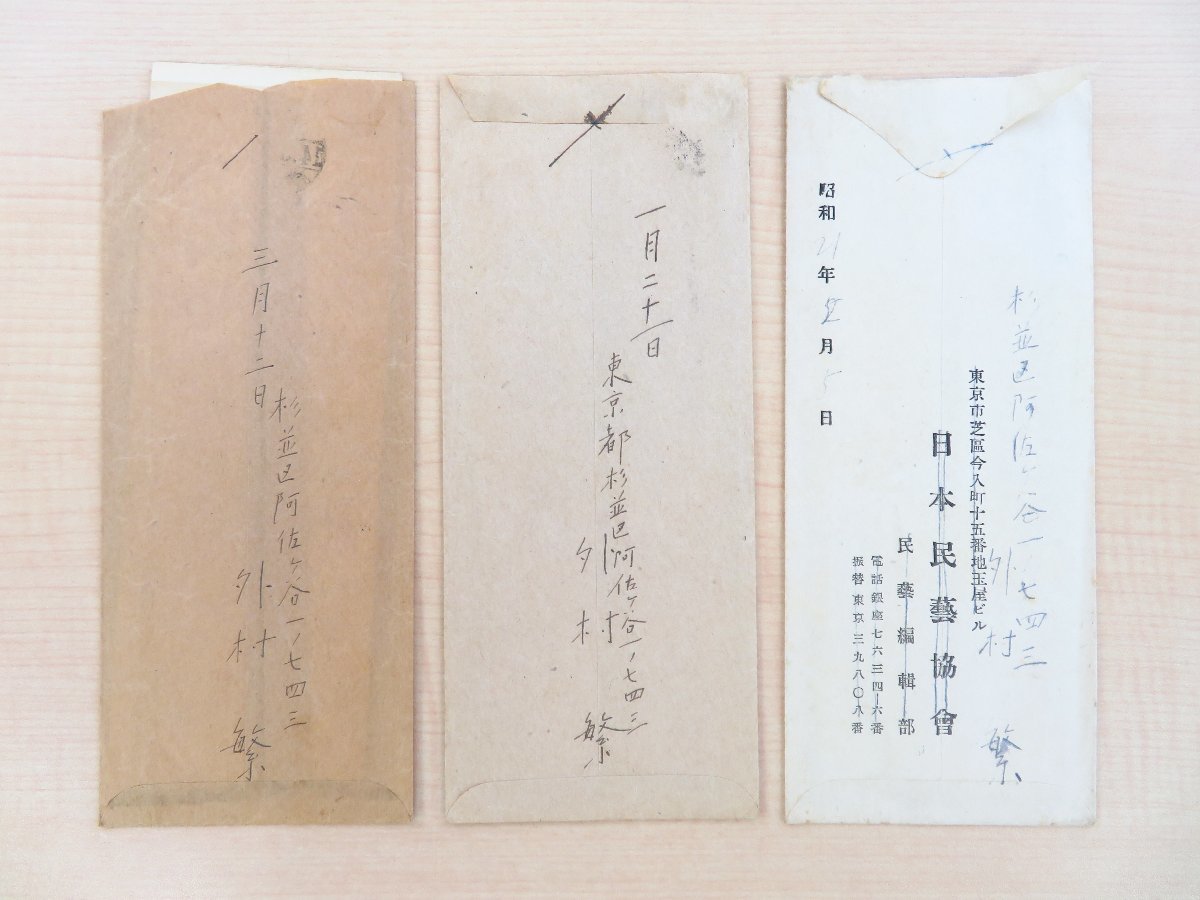 三月十二日
杉並区阿佐ヶ谷一ノ七四三
外村
繁
一月二十一日
東京都杉並区阿佐ヶ谷一ノ七四三
外村
繁
杉並区阿佐ヶ谷一ノ七四三
外村
繁
東京市芝區今入町十五番地玉屋ビル
日本民藝協會
民藝編輯部
電話銀座七六三四-六番
振替東京三九八〇八番
昭和21年 月5日